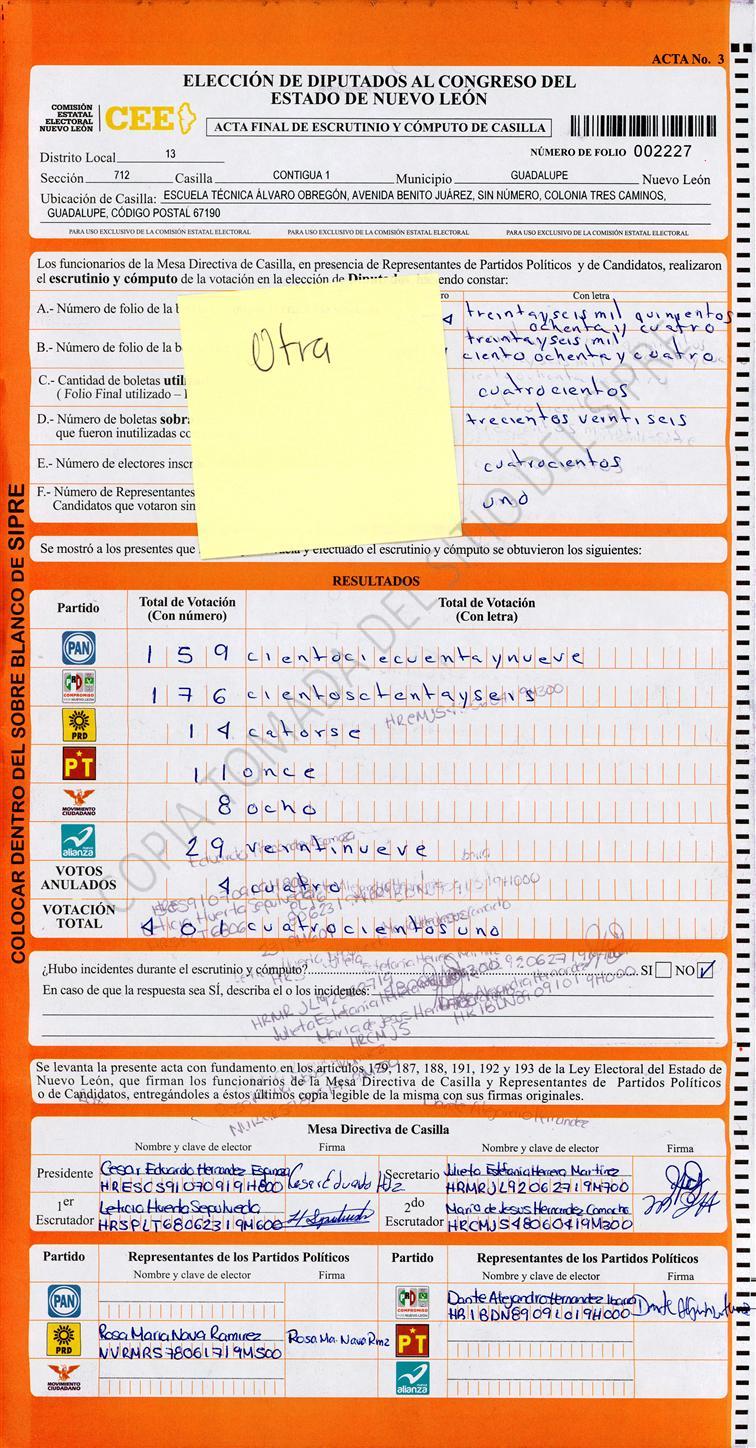 ACTA No. 3
ELECCIÓN DE DIPUTADOS AL CONGRESO DEL
ESTADO DE NUEVO LEÓN
COMISIÓN
ESTATAL
ELECTORAL
NUEVO LEÓN
CEE
ACTA FINAL DE ESCRUTINIO Y CÓMPUTO DE CASILLA
Distrito Local 13
NÚMERO DE FOLIO 002227
Sección 712 Casilla CONTIGUA 1 Municipio GUADALUPE Nuevo León
Ubicación de Casilla: ESCUELA TÉCNICA ÁLVARO OBREGÓN, AVENIDA BENITO JUÁREZ, SIN NÚMERO, COLONIA TRES CAMINOS,
GUADALUPE, CÓDIGO POSTAL 67190
PARA USO EXCLUSIVO DE LA COMISIÓN ESTATAL ELECTORAL PARA USO EXCLUSIVO DE LA COMISIÓN ESTATAL ELECTORAL PARA USO EXCLUSIVO DE LA COMISIÓN ESTATAL ELECTORAL
Los funcionarios de la Mesa Directiva de Casilla, en presencia de Representantes de Partidos Políticos y de Candidatos, realizaron
el escrutinio y cómputo de la votación en la elección de constar:
Con letra
A.- Número de folio de la 4 treintayseis mil quinientos
ochenta y cuatro
B.- Número de folio de la treintayseis mil
ciento ochenta y cuatro
C.- Cantidad de boletas cuatrocientos
( Folio Final utilizado –
D.- Número de boletas trecientos veintiseis
que fueron inutilizadas
E.- Número de electores cuatrocientos
F.- Número de Representantes uno
Candidatos que votaron
Otra
Se mostró a los presentes que y efectuado el escrutinio y cómputo se obtuvieron los siguientes:
RESULTADOS
Partido Total de Votación Total de Votación
(Con número) (Con letra)
PAN 159 cientociecuentaynueve
PRD COMPROMISO 176 cientosetentayseis
PRD 14 catorse
PT 11 once
MOVIMIENTO CIUDADANO 8 ocho
nueva alianza 29 veintinueve
VOTOS
ANULADOS 4 cuatro
VOTACIÓN
TOTAL 401 cuatrocientosuno
¿Hubo incidentes durante el escrutinio y cómputo? SI NO ✓
En caso de que la respuesta sea SÍ, describa el o los incidentes:
Se levanta la presente acta con fundamento en los artículos 179, 187, 188, 191, 192 y 193 de la Ley Electoral del Estado de
Nuevo León, que firman los funcionarios de la Mesa Directiva de Casilla y Representantes de Partidos Políticos
o de Candidatos, entregándoles a éstos últimos copia legible de la misma con sus firmas originales.
Mesa Directiva de Casilla
Nombre y clave de elector Firma Nombre y clave de elector Firma
Presidente Cesar Eduardo Hernandez Espinoza Secretario Julieta Estefania Herrera Martinez
HRESCS91070919H800 HRMRJL92062719M700
1er Escrutador Leticia Huerta Sepulveda 2do Escrutador Maria de Jesus Hernandez Camacho
HRSPLT68062319M600 HRCMJS48060419M300
Partido Representantes de los Partidos Políticos Partido Representantes de los Partidos Políticos
Nombre y clave de elector Firma Nombre y clave de elector Firma
PAN
Dante Alejandro Hernandez
HRIBDN89091019H000
PRD Rosa Maria Nava Ramirez Rosa Ma. Nava Rmz
NVRMRS78061719M500
PT
MOVIMIENTO CIUDADANO
nueva alianza
COLOCAR DENTRO DEL SOBRE BLANCO DE SIPRE
COPIA TOMADA DEL SITIO DEL SIPRE